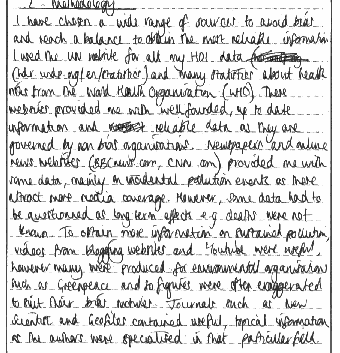 2. Methodology
I have chosen a wide range of sources to avoid bias
and reach a balance to obtain the most reliable information
I used the UN website for all my HDI data
(hdr.undp.org/en/statistics) and many statistics about health
risks from the World Health Organisation (WHO). These
websites provided me with well founded, up to date
information and reliable data as they are
governed by non bias organisations. Newspapers and online
news websites (BBCnews.com, cnn.com) provided me with
some data, mainly on incidental pollution events as these
attract more media coverage. However, some data had to
be questioned as long term effects e.g. deaths were not
known. To obtain more information on sustained pollution,
videos from blogging websites and Youtube were useful,
however many were produced for environmental organisation
such as Greenpeace and so figures were often exaggerated
to suit their motives. Journals such as New
Scientist and Geofiles contained useful, topical information
as the authors were specialised in that particular field.